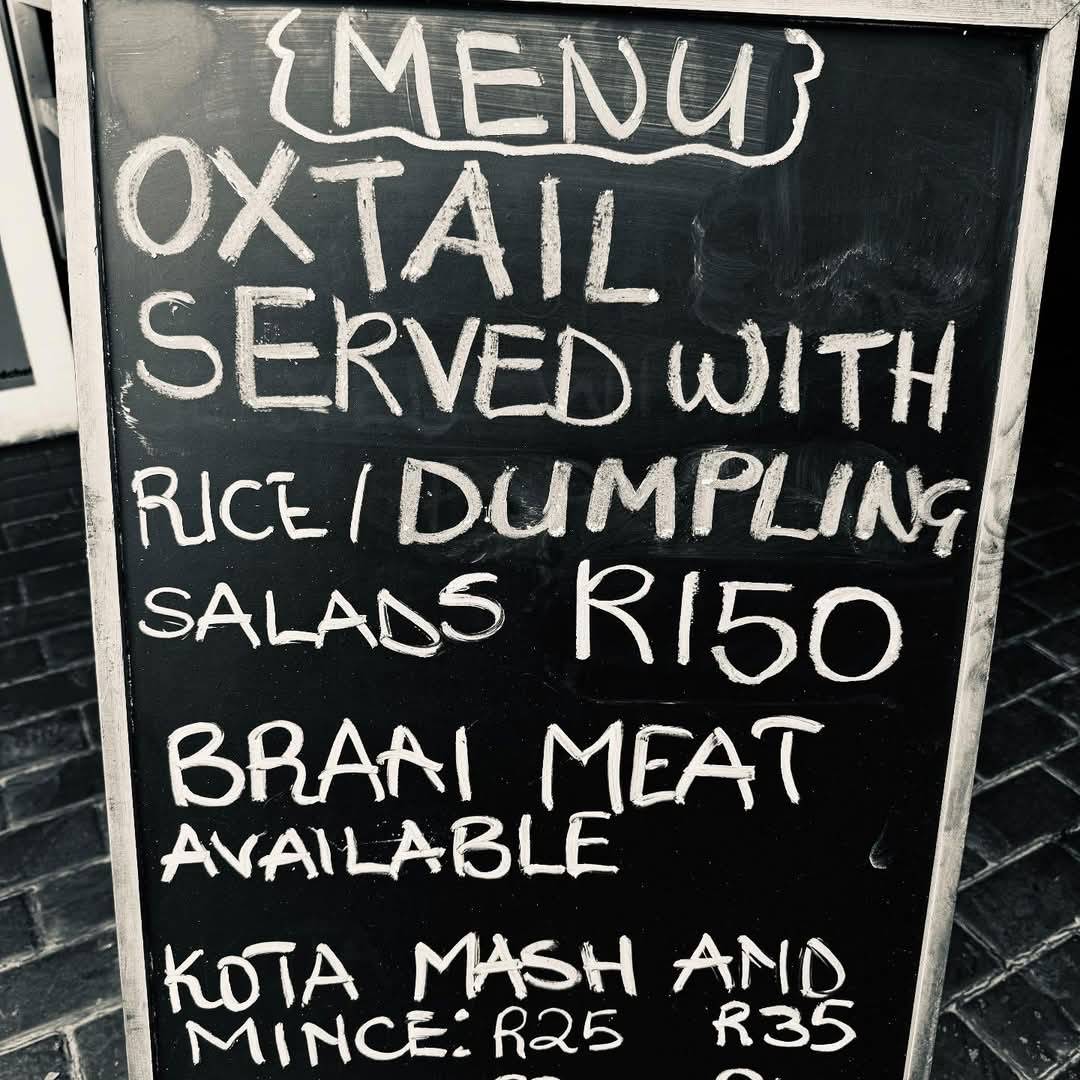 {MENU}
OXTAIL
SERVED WITH
RICE / DUMPLING
SALADS R150
BRAAI MEAT
AVAILABLE
KOTA MASH AND
MINCE: R25 R35